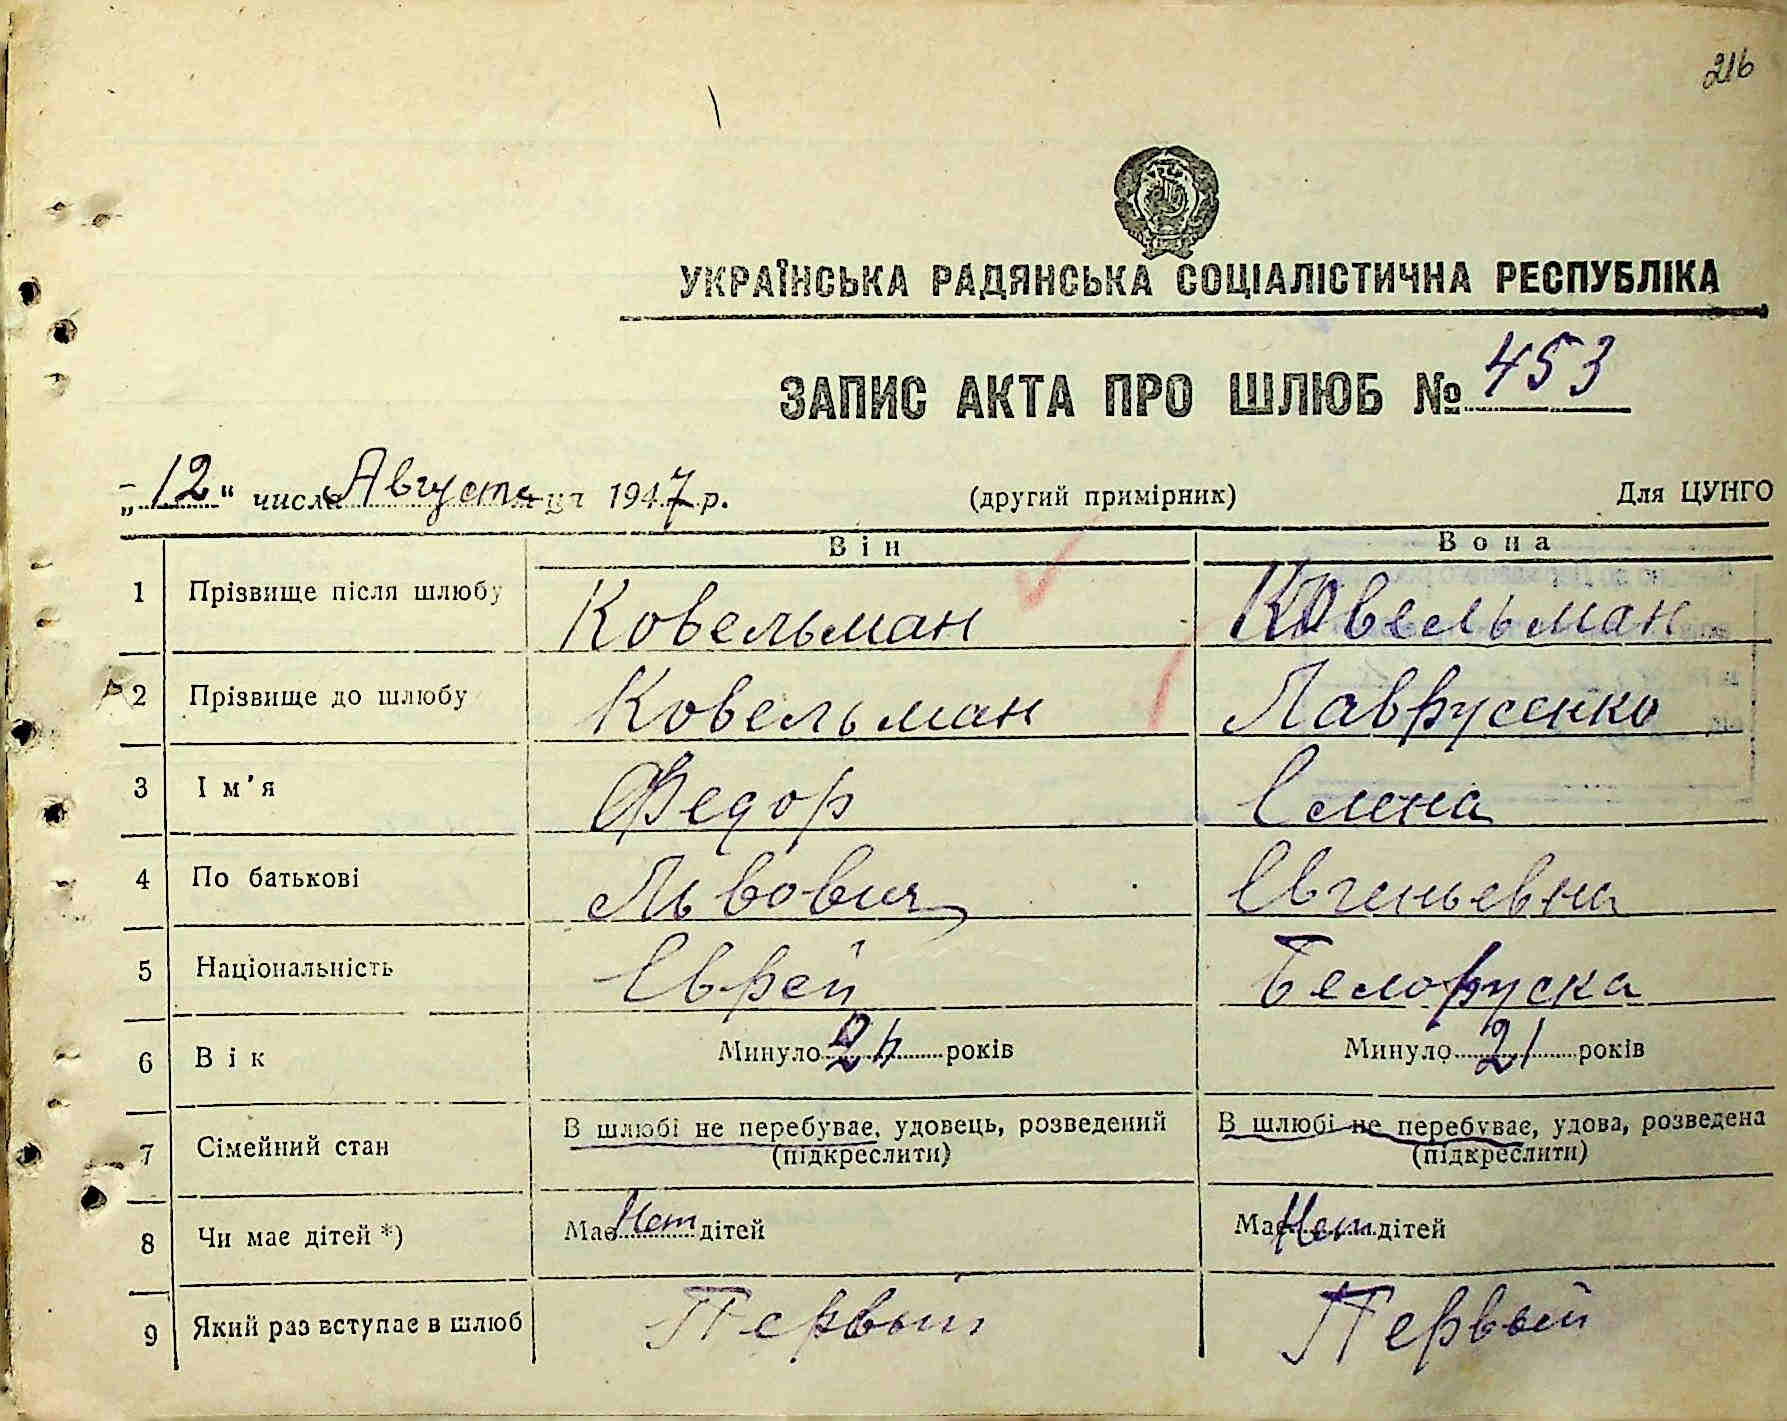 216
УКРАЇНСЬКА РАДЯНСЬКА СОЦІАЛІСТИЧНА РЕСПУБЛІКА
ЗАПИС АКТА ПРО ШЛЮБ № 453
„12“ числа Августа ця 1947 р. (другий примірник) Для ЦУНГО
Він Вона
1 Прізвище після шлюбу Ковельман Ковельман
2 Прізвище до шлюбу Ковельман Лаврусенко
3 Ім'я Федор Елена
4 По батькові Львович Евгеньевна
5 Національність Еврей Белоруска
6 Вік Минуло років Минуло 21 років
7 Сімейний стан В шлюбі не перебуває, удовець, розведений В шлюбі не перебуває, удова, розведена
(підкреслити) (підкреслити)
8 Чи має дітей *) Має Нет дітей Має Нет дітей
9 Який раз вступає в шлюб Первый Первый